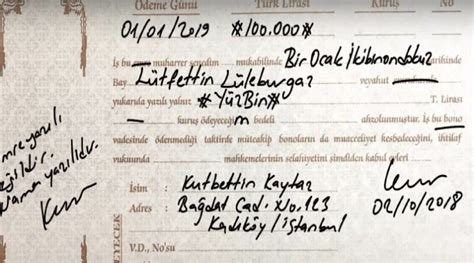 Ödeme Günü Türk Lirası Kuruş No
01/01/2019 #100.000#
İş bu muharrer senedim mukabilinde Bir Ocak İkibinondokuz tarihinde
Bay Lütfettin Lüleburgaz veyahut
yukarıda yazılı yalnız #YüzBin# T. Lirası
kuruş ödeyeceğim bedeli ahzolunmuştur. İş bu bono
vadesinde ödenmediği taktirde müteakip bonoların da muacceliyet kesbedeceğini, ihtilaf
vukuunda mahkemelerinin selahiyetini şimdiden kabul
mre yazılı
eğildir.
Nama yazılıdır.
İsim : Kutbettin Kaytaz
Adres : Bağdat Cad. No. 123
Kadıköy/İstanbul
02/10/2018
V.D., No'su
EYECEK